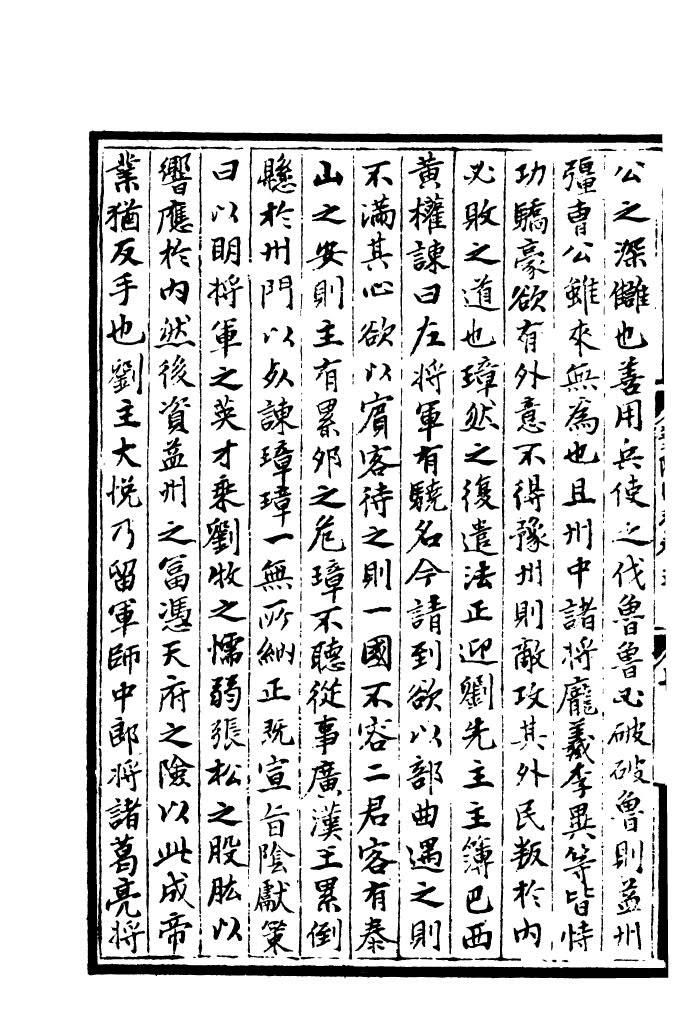 公之深讎也善用兵使之伐魯魯必破破魯則益州
彊曹公雖來無為也且州中諸将龐羲李異等皆恃
功驕豪欲有外意不得豫州則敵攻其外民叛於内
必敗之道也璋然之復遣法正迎劉先主主簿巴西
黄權諫曰左将軍有驍名今請到欲以部曲遇之則
不滿其心欲以賔客待之則一國不容二君客有泰
山之安則主有累夘之危璋不聽從事廣漢王累倒
懸於州門以死諫璋璋一無所納正既宣旨隂獻策
曰以明将軍之英才乘劉牧之懦弱張松之股肱以
響應於内然後資益州之冨憑天府之險以此成帝
業猶反手也劉主大悅乃留軍師中郎将諸葛亮将